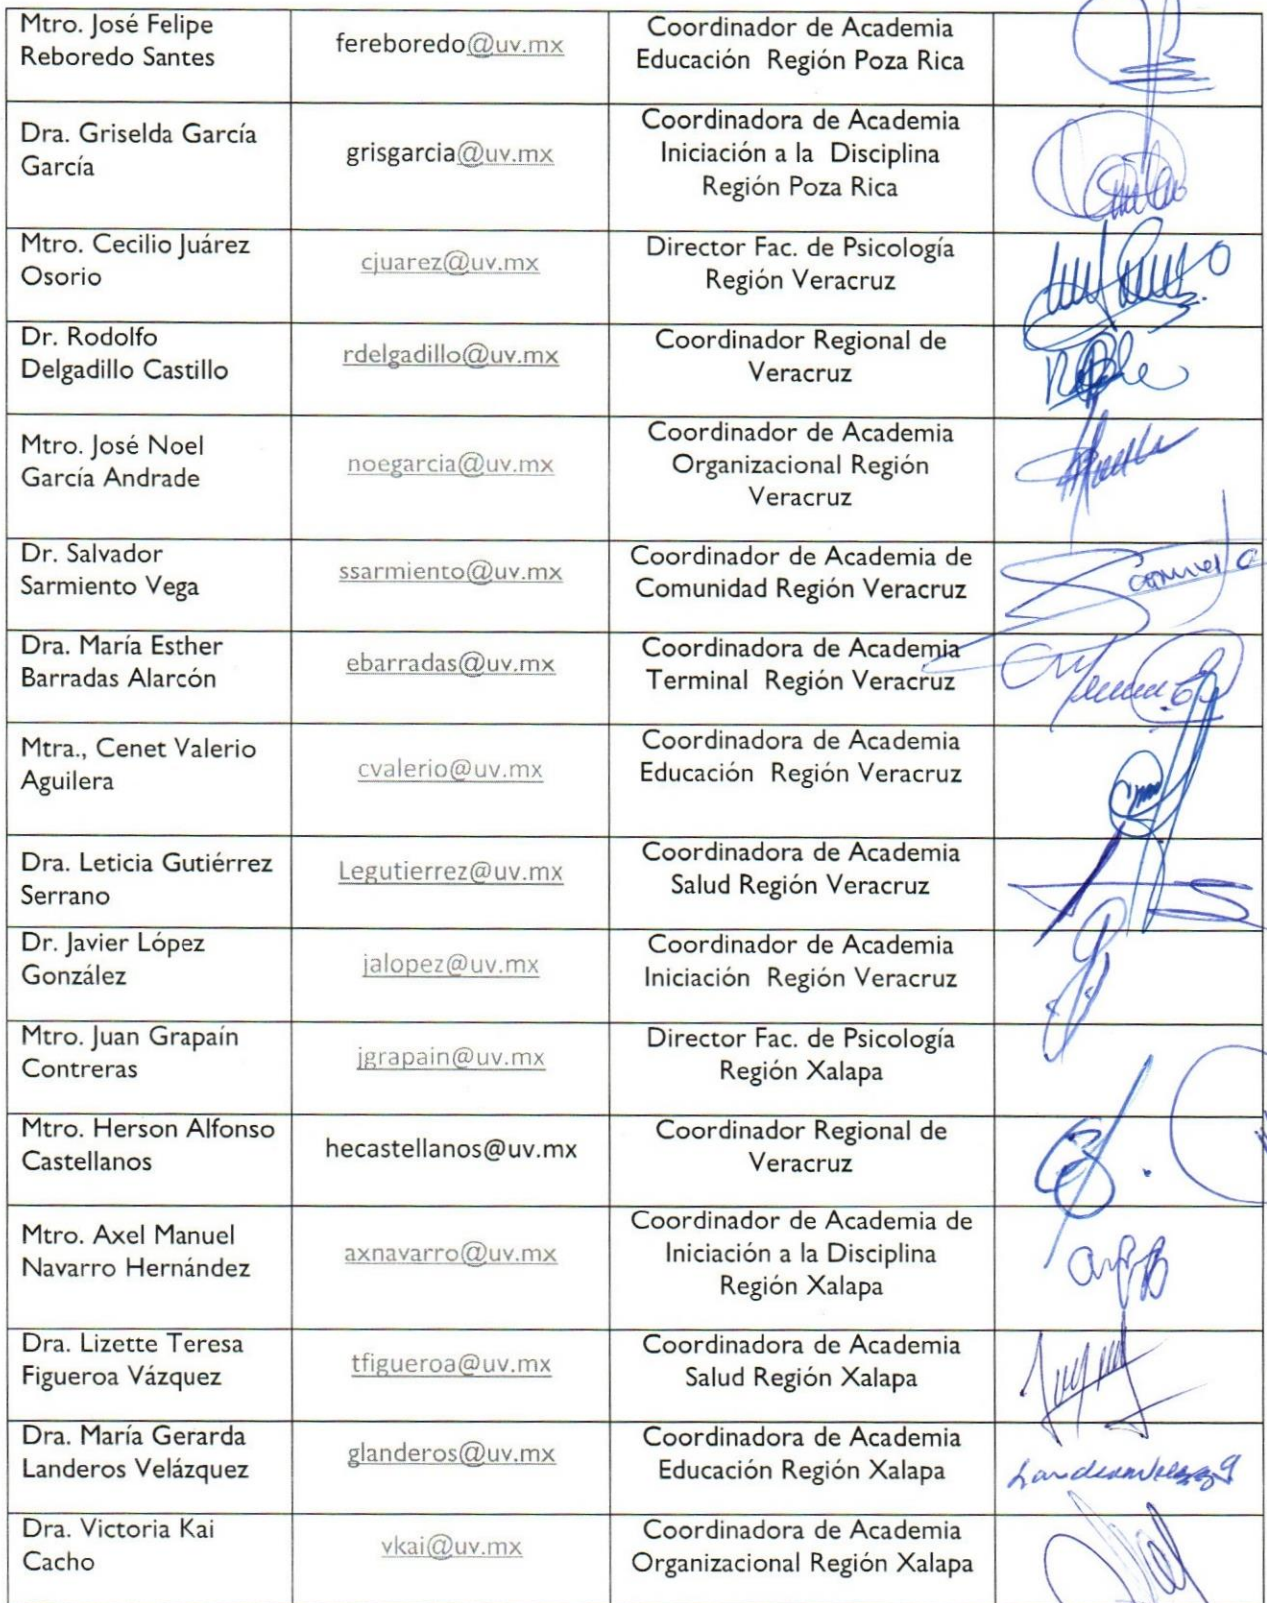 Mtro. José Felipe
Reboredo Santes
fereboredo@uv.mx
Coordinador de Academia
Educación Región Poza Rica
Dra. Griselda García
García
grisgarcia@uv.mx
Coordinadora de Academia
Iniciación a la Disciplina
Región Poza Rica
Mtro. Cecilio Juárez
Osorio
cjuarez@uv.mx
Director Fac. de Psicología
Región Veracruz
Dr. Rodolfo
Delgadillo Castillo
rdelgadillo@uv.mx
Coordinador Regional de
Veracruz
Mtro. José Noel
García Andrade
noegarcia@uv.mx
Coordinador de Academia
Organizacional Región
Veracruz
Dr. Salvador
Sarmiento Vega
ssarmiento@uv.mx
Coordinador de Academia de
Comunidad Región Veracruz
Dra. María Esther
Barradas Alarcón
ebarradas@uv.mx
Coordinadora de Academia
Terminal Región Veracruz
Mtra., Cenet Valerio
Aguilera
cvalerio@uv.mx
Coordinadora de Academia
Educación Región Veracruz
Dra. Leticia Gutiérrez
Serrano
Legutierrez@uv.mx
Coordinadora de Academia
Salud Región Veracruz
Dr. Javier López
González
jalopez@uv.mx
Coordinador de Academia
Iniciación Región Veracruz
Mtro. Juan Grapaín
Contreras
jgrapain@uv.mx
Director Fac. de Psicología
Región Xalapa
Mtro. Herson Alfonso
Castellanos
hecastellanos@uv.mx
Coordinador Regional de
Veracruz
Mtro. Axel Manuel
Navarro Hernández
axnavarro@uv.mx
Coordinador de Academia de
Iniciación a la Disciplina
Región Xalapa
Dra. Lizette Teresa
Figueroa Vázquez
tfigueroa@uv.mx
Coordinadora de Academia
Salud Región Xalapa
Dra. María Gerarda
Landeros Velázquez
glanderos@uv.mx
Coordinadora de Academia
Educación Región Xalapa
Dra. Victoria Kai
Cacho
vkai@uv.mx
Coordinadora de Academia
Organizacional Región Xalapa